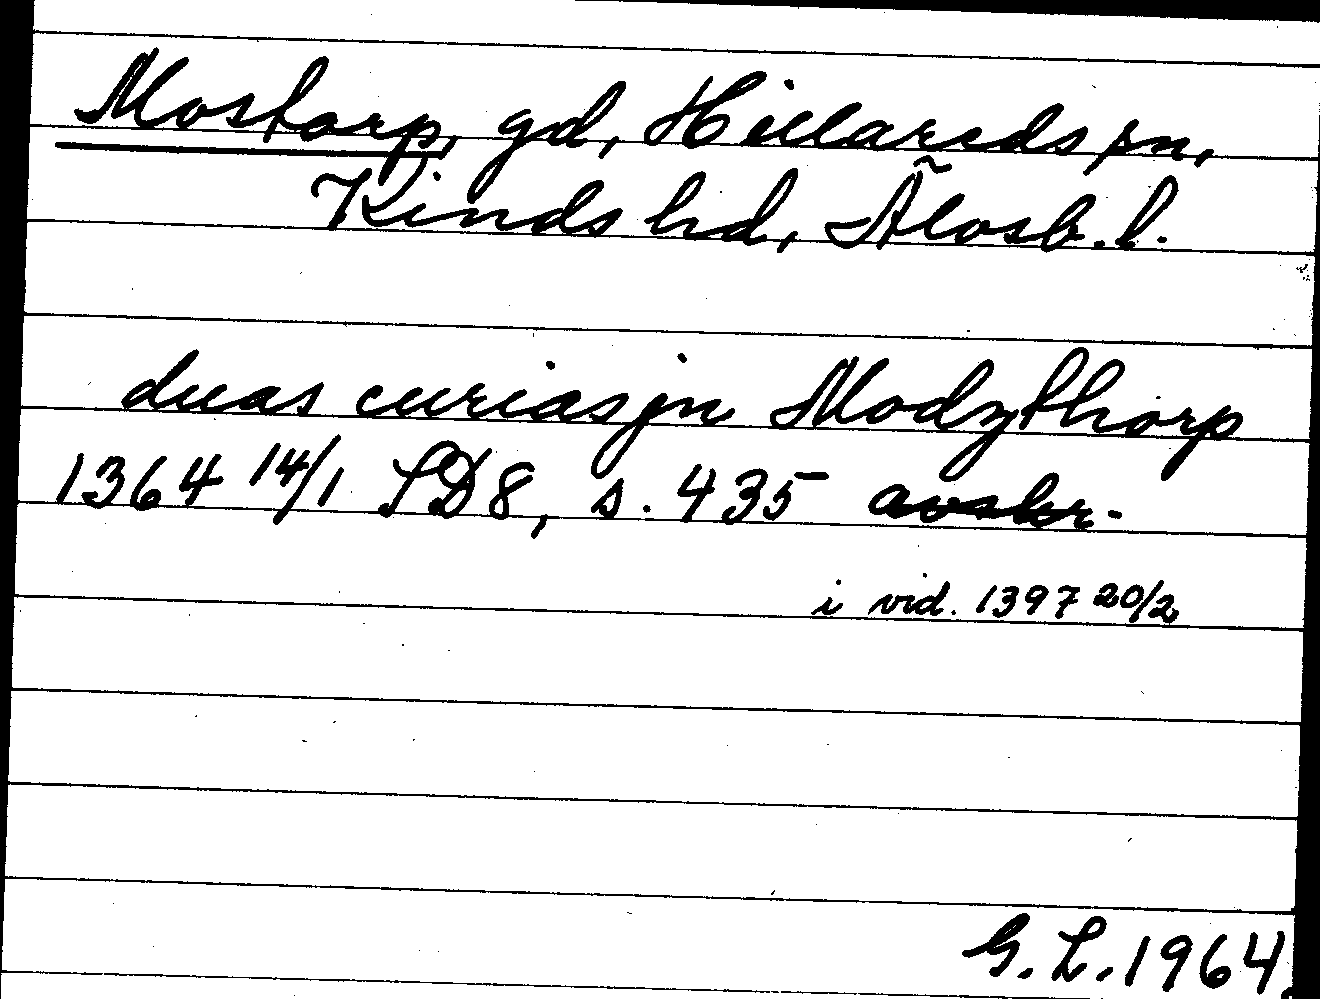 Mostorp, gd, Hillareds sn,
Kinds hd, Älvsb. l.
duas curias jn Modzthorp
1364 14/1 SD8, s. 435 avskr.
i vid. 1397 20/2
G. L. 1964.